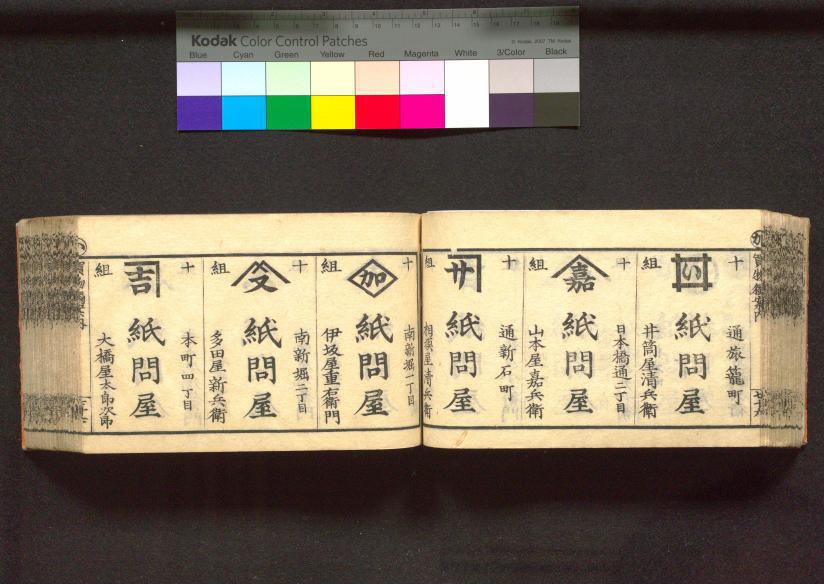 Kodak Color Control Patches
© Kodak, 2007 TM: Kodak
Blue Cyan Green Yellow Red Magenta White 3/Color Black
十
組
通旅籠町
い
紙問屋
井筒屋清兵衛
十
組
日本橋通二丁目
嘉
紙問屋
山本屋嘉兵衛
十
組
通新石町
サ
紙問屋
相模屋清兵衛
十
組
南新堀一丁目
加
紙問屋
伊坂屋重右衛門
十
組
南新堀二丁目
又
紙問屋
多田屋新兵衛
十
組
本町四丁目
吉
紙問屋
大橋屋太郎次郎